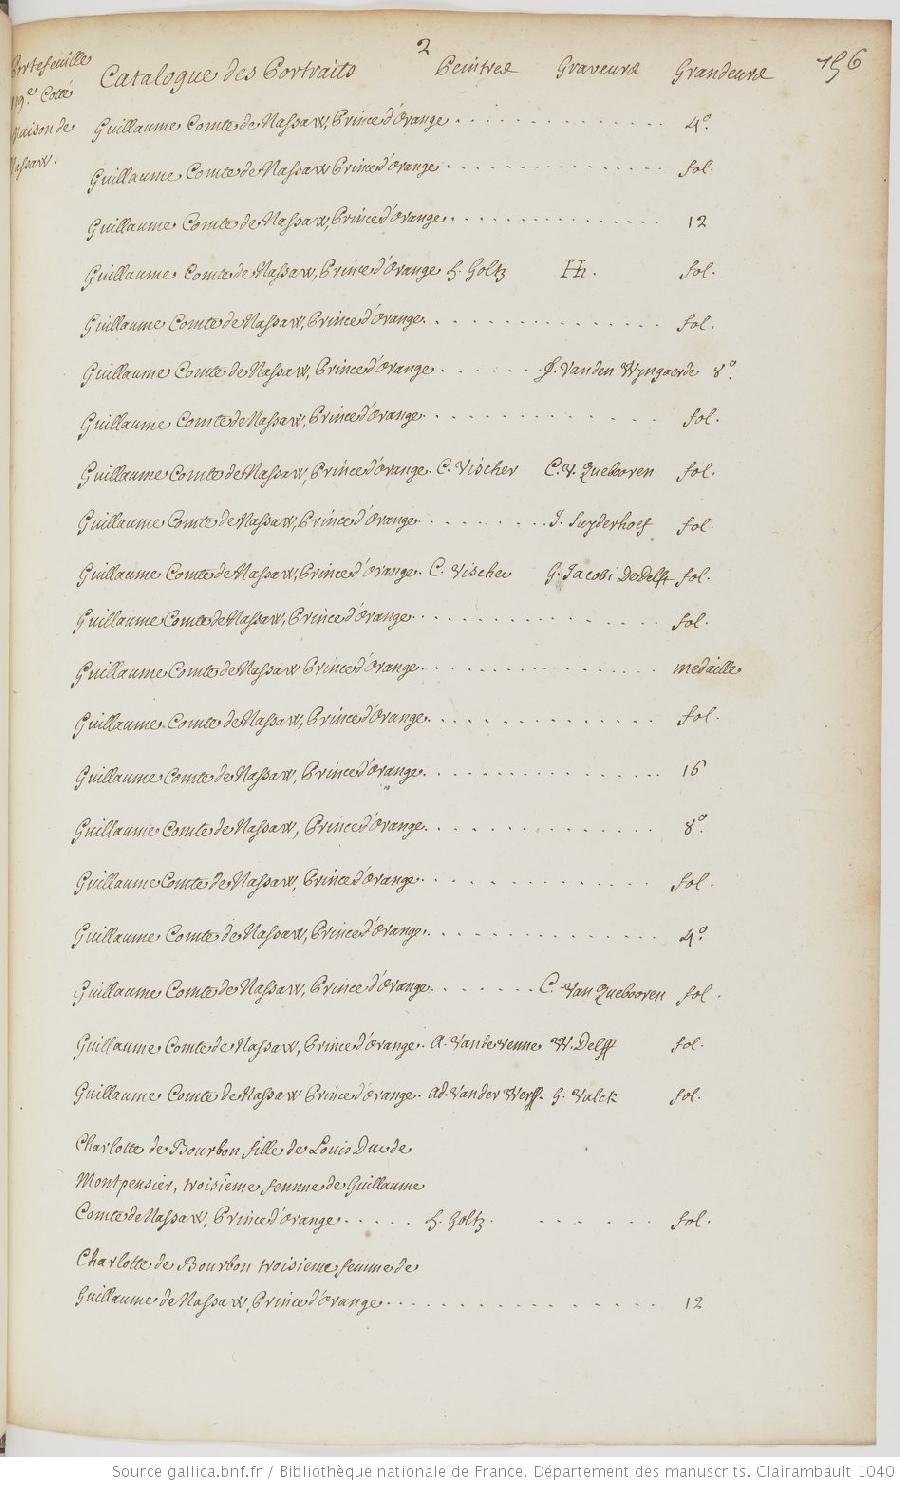 2
156
Portefeuille
19e. Cotté
Maison de
Nassaw.
Catalogue des Portraits Peintres Graveurs Grandeurs
Guillaume Comte de Nassaw, Prince d'Orange . . . . . . . . . . . . . . 4o.
Guillaume Comte de Nassaw Prince d'Orange . . . . . . . . . . . . . . fol.
Guillaume Comte de Nassaw, Prince d'Orange . . . . . . . . . . . . . . 12
Guillaume Comte de Nassaw, Prince d'Orange h. Goltz Hh. fol.
Guillaume Comte de Nassaw, Prince d'Orange . . . . . . . . . . . . . . fol.
Guillaume Comte de Nassaw, Prince d'Orange . . . . . . . f. Vanden Wyngaerde 8o.
Guillaume Comte de Nassaw, Prince d'Orange . . . . . . . . . . . . . . fol.
Guillaume Comte de Nassaw, Prince d'Orange. C. Vischer C. V. Quebooren fol.
Guillaume Comte de Nassaw, Prince d'Orange . . . . . . . J. Suyderhoef fol.
Guillaume Comte de Nassaw, Prince d'Orange. C. Vischer G. Jacobi De Delft fol.
Guillaume Comte de Nassaw, Prince d'Orange . . . . . . . . . . . . . . fol.
Guillaume Comte de Nassaw Prince d'Orange . . . . . . . . . . . . . . medaille
Guillaume Comte de Nassaw, Prince d'Orange . . . . . . . . . . . . . . fol.
Guillaume Comte de Nassaw, Prince d'Orange . . . . . . . . . . . . . . 16
Guillaume Comte de Nassaw, Prince d'Orange . . . . . . . . . . . . . . 8o.
Guillaume Comte de Nassaw, Prince d'Orange . . . . . . . . . . . . . . fol.
Guillaume Comte de Nassaw, Prince d'Orange . . . . . . . . . . . . . . 4o.
Guillaume Comte de Nassaw, Prince d'Orange . . . . . . . C. Van Quebooren fol.
Guillaume Comte de Nassaw, Prince d'Orange. A. Vande venne W. Delff fol.
Guillaume Comte de Nassaw Prince d'Orange. ad. Vander Werff. G. Valck fol.
Charlotte de Bourbon fille de Louis Duc de
Montpensier, troisieme femme de Guillaume
Comte de Nassaw, Prince d'Orange . . . . . h. Goltz. . . . . . . fol.
Charlotte de Bourbon troisieme femme de
Guillaume de Nassaw, Prince d'Orange . . . . . . . . . . . . . . 12
Source gallica.bnf.fr / Bibliothèque nationale de France. Département des manuscrits. Clairambault 1040